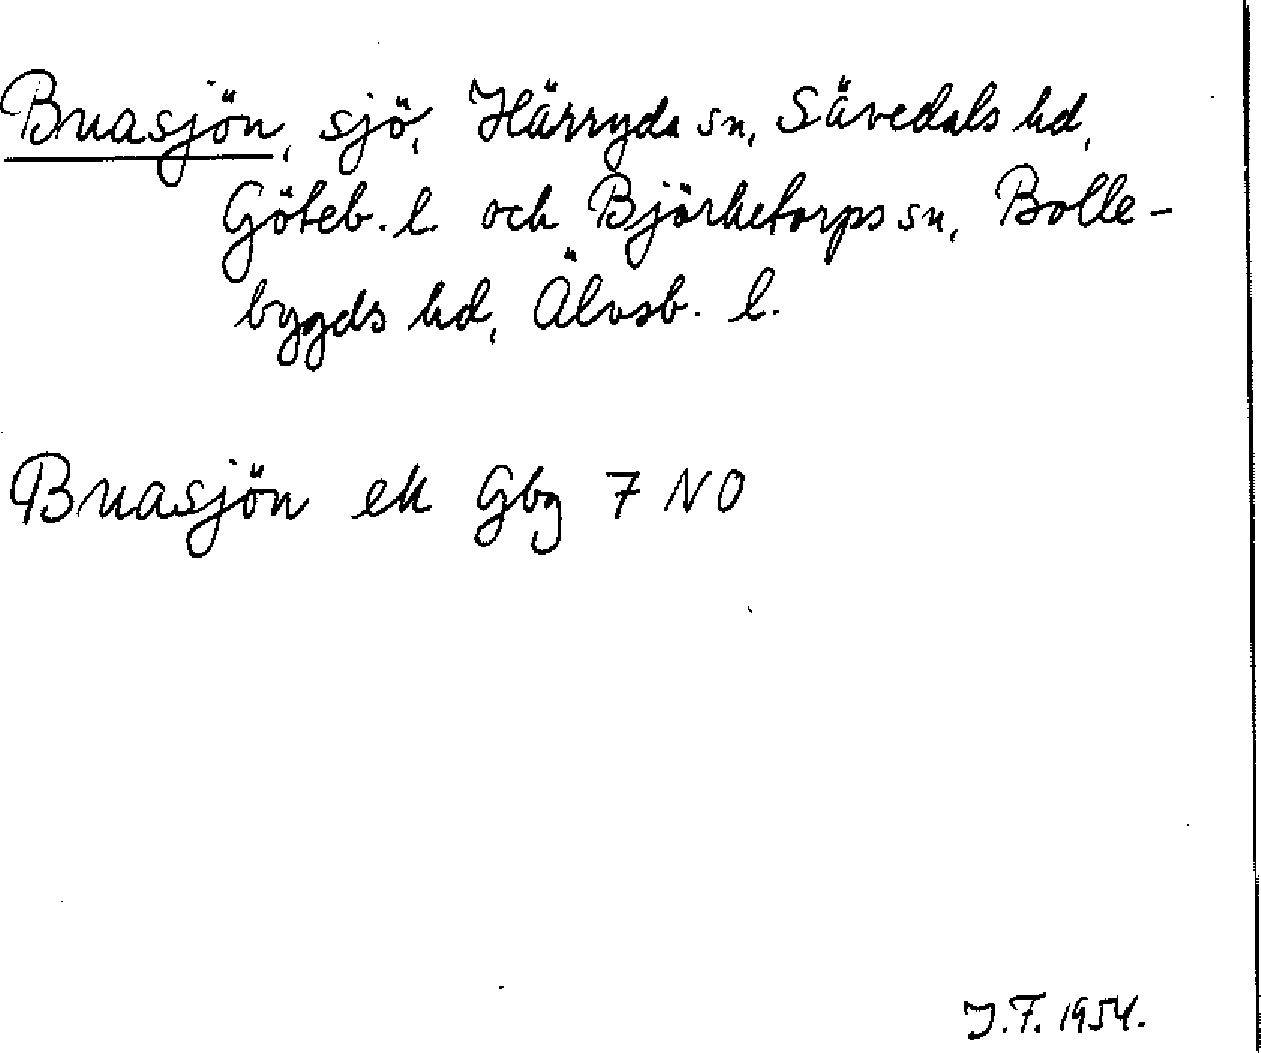 Buasjön, sjö, Härryda sn, Sävedals hd,
Göteb. l. och Björketorps sn, Bolle-
bygds hd, Älvsb. l.
Buasjön ek Gbg 7 NO
J.F. 1954.